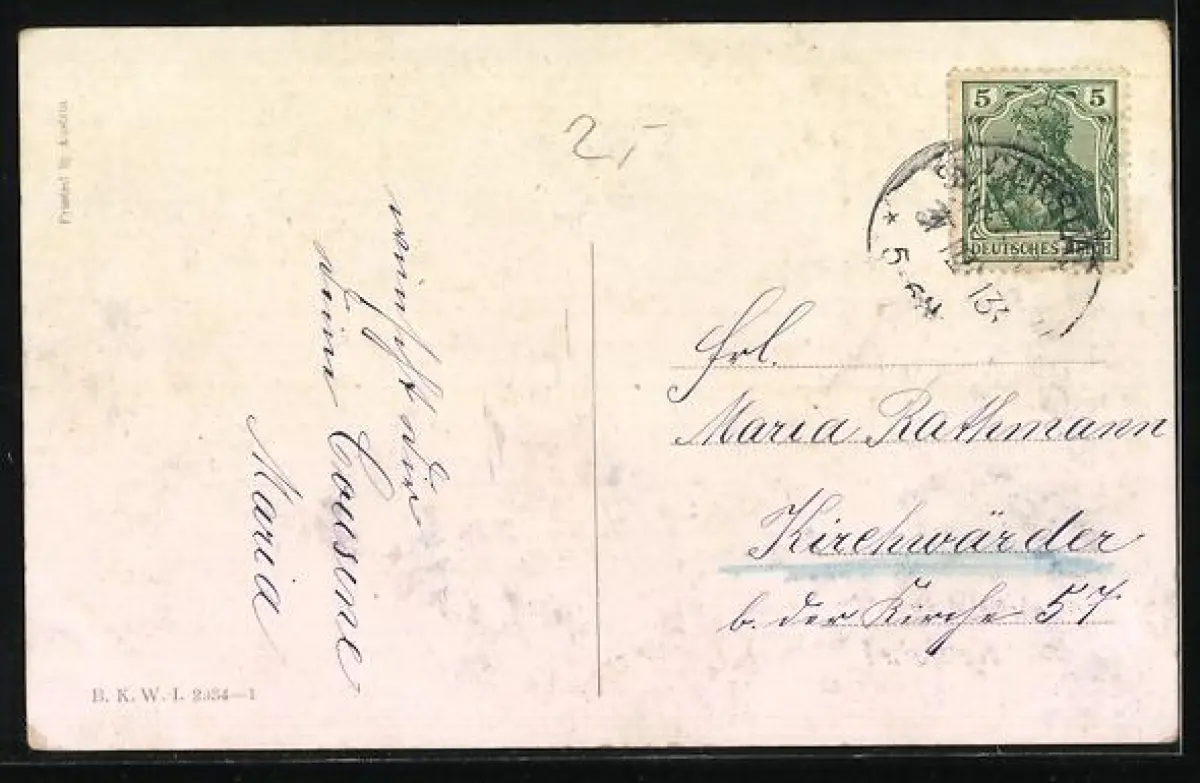 Printed in Austria
2,-
wünscht dir
deine Cousine
Maria
B. K. W. I. 2334—1
5 5
DEUTSCHES REICH
13
5-6N
Frl.
Maria Rathmann
Kirchwärder
b. der Kirche 57